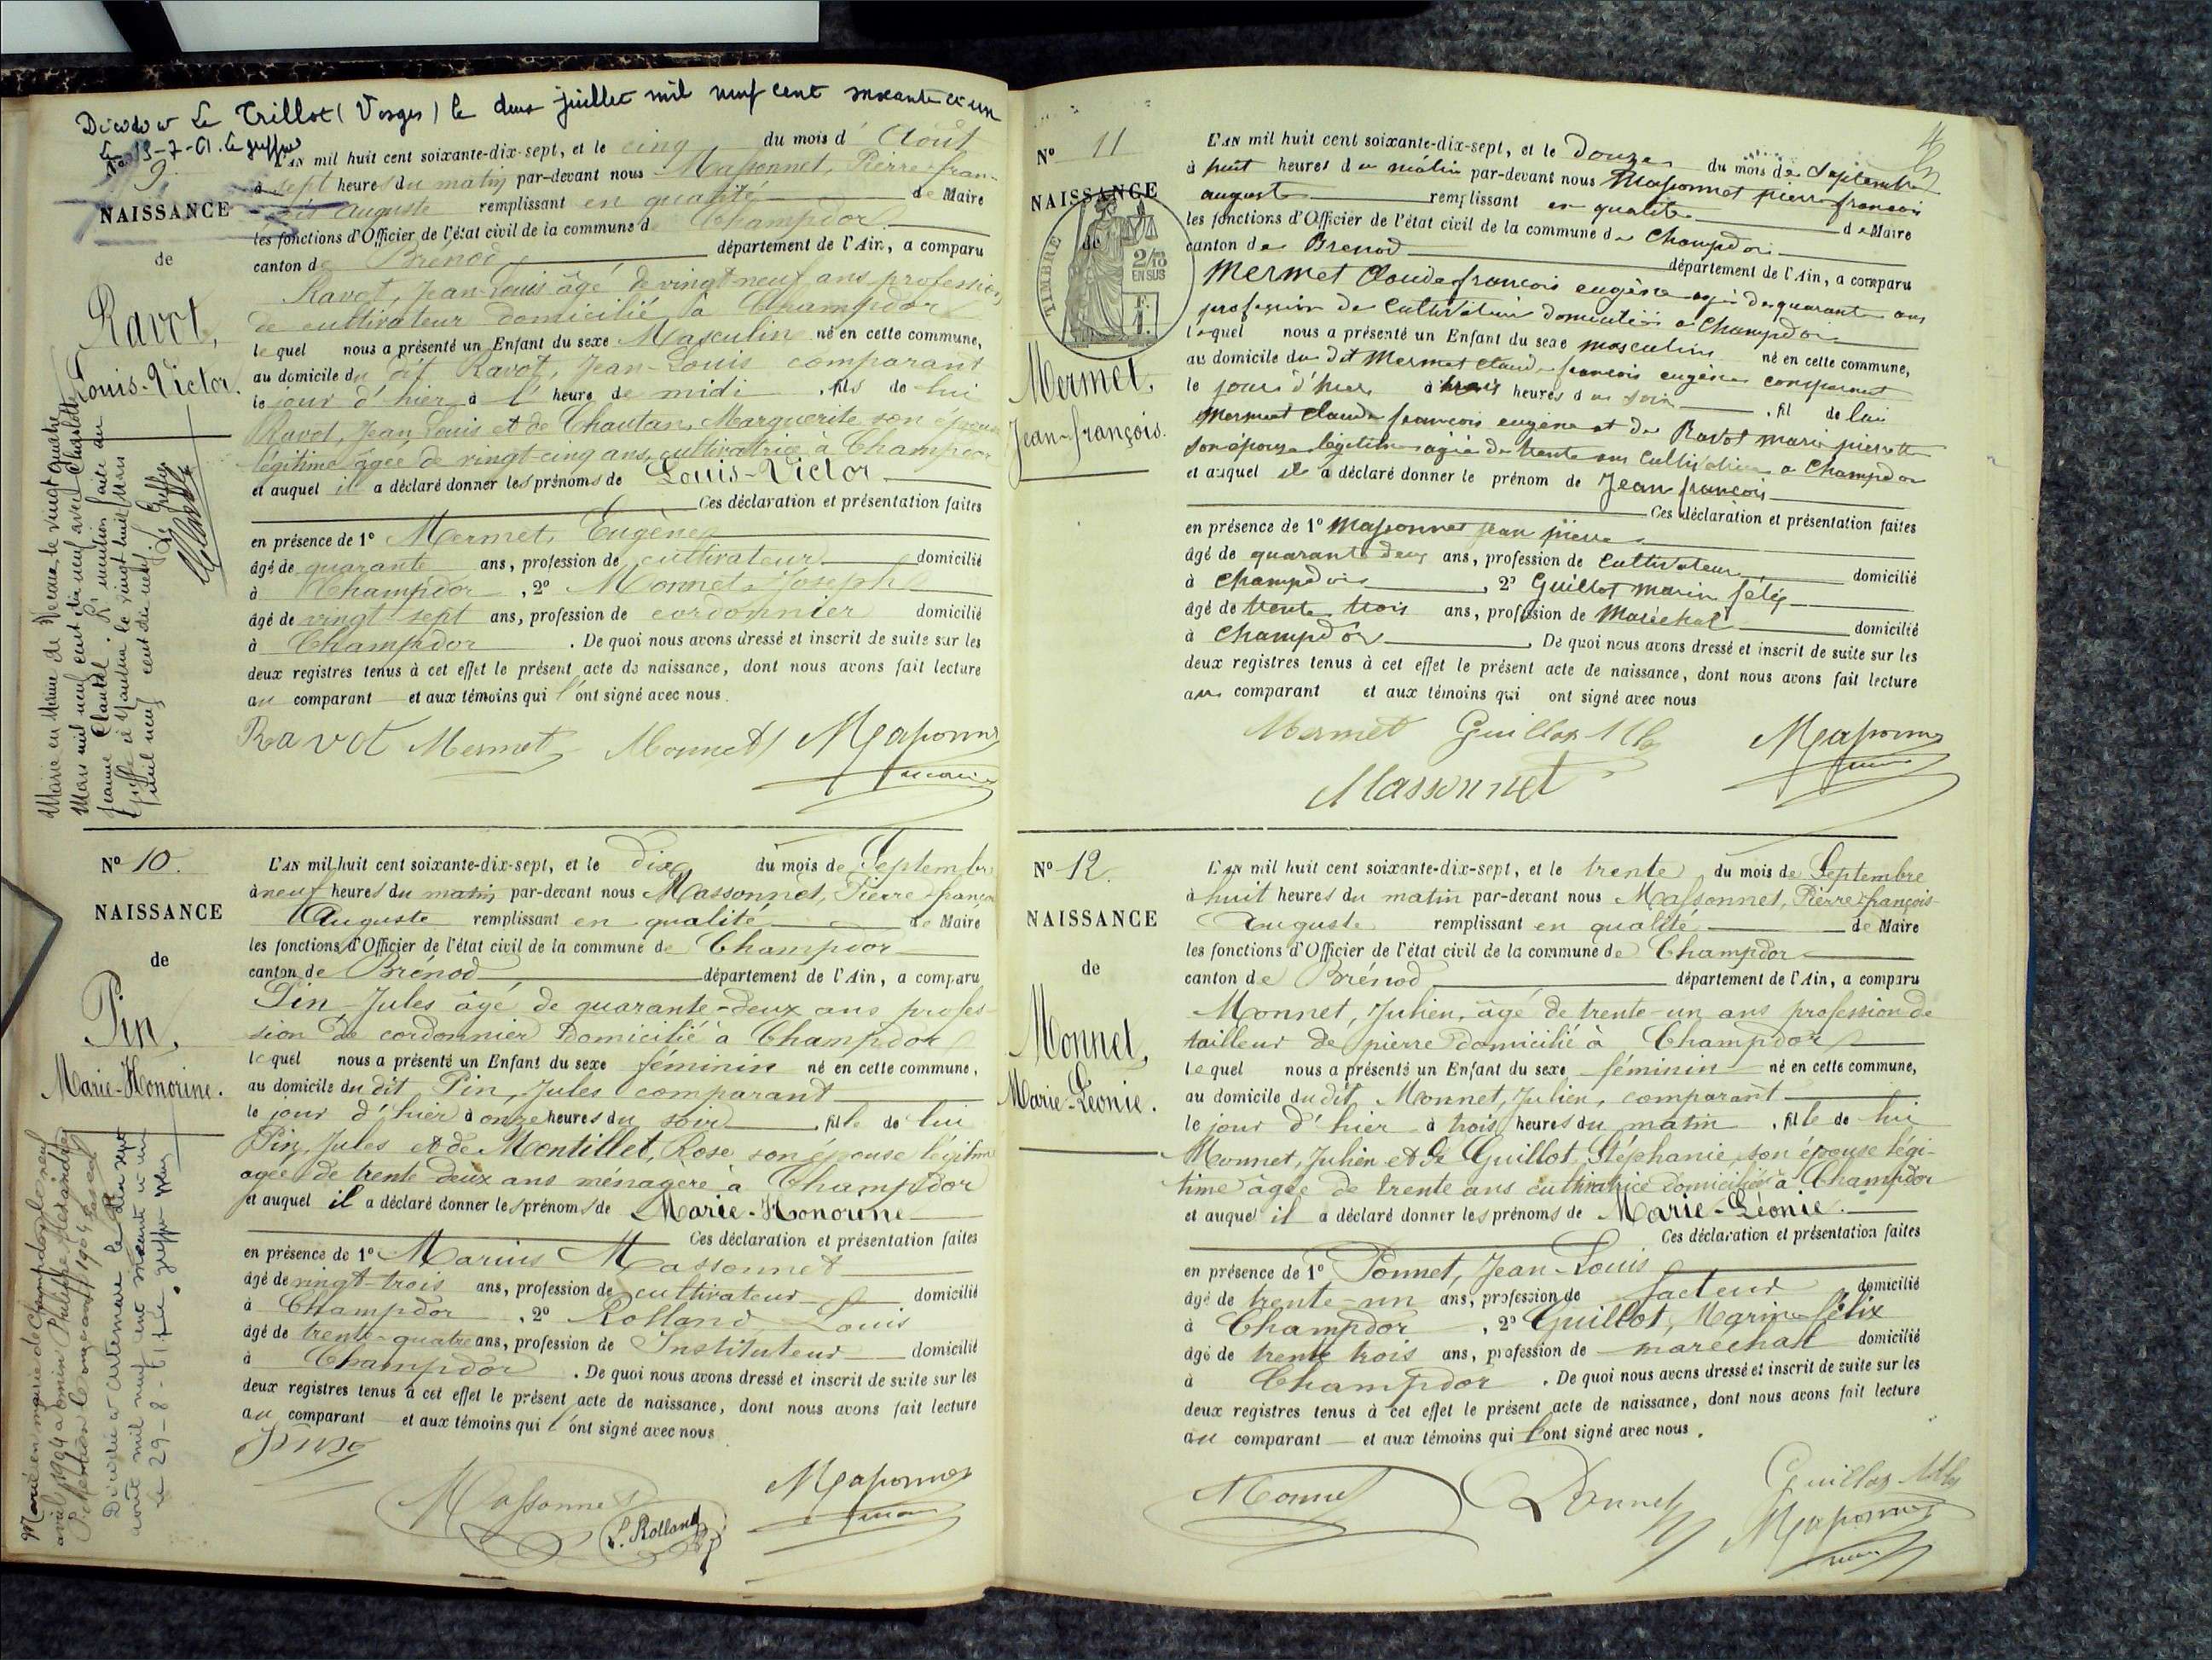 Décédé à Le Trillot (Vosges) le deux juillet mil neuf cent soixante et un
Le 13-7-61. Le greffier
N° 9.
NAISSANCE
de
Ravot,
Louis-Victor.
L'AN mil huit cent soixante-dix-sept, et le cinq du mois d'Août
à sept heures du matin par-devant nous Massonnet, Pierre-fran-
çois Auguste remplissant en qualité de Maire
les fonctions d'Officier de l'état civil de la commune de Champdor
canton de Brénod département de l'Ain, a comparu
Ravot, Jean-Louis âgé de vingt-neuf ans profession
de cultivateur domicilié à Champdor
lequel nous a présenté un Enfant du sexe Masculin né en cette commune,
au domicile du dit Ravot, Jean-Louis comparant
le jour d'hier à l' heure de midi , fils de lui
Ravot, Jean Louis et de Chautan, Marguerite son épouse
légitime âgée de vingt-cinq ans, cultivatrice à Champdor
et auquel il a déclaré donner les prénoms de Louis-Victor
Ces déclaration et présentation faites
en présence de 1° Mermet, Eugène
âgé de quarante ans, profession de cultivateur domicilié
à Champdor , 2° Monnet, Joseph
âgé de vingt-sept ans, profession de cordonnier domicilié
à Champdor . De quoi nous avons dressé et inscrit de suite sur les
deux registres tenus à cet effet le présent acte de naissance, dont nous avons fait lecture
au comparant et aux témoins qui l'ont signé avec nous.
Ravot Mermet Monnet Massonnet
maire
Marié en Mairie de le vingt quatre
Mars mil neuf cent dix neuf avec Charlotte
Jeanne Claudel. Pr mention faite au
Greffe à Nantua le vingt huit Mars
mil neuf cent dix neuf. Le Greffier
N° 10.
NAISSANCE
de
Pin,
Marie-Honorine.
L'AN mil huit cent soixante-dix-sept, et le dix du mois de Septembre
à neuf heures du matin par-devant nous Massonnet, Pierre-françois
Auguste remplissant en qualité de Maire
les fonctions d'Officier de l'état civil de la commune de Champdor
canton de Brénod département de l'Ain, a comparu
Pin, Jules âgé de quarante-deux ans profes-
sion de cordonnier domicilié à Champdor
lequel nous a présenté un Enfant du sexe féminin né en cette commune,
au domicile du dit Pin, Jules comparant
le jour d'hier à onze heures du soir , fille de lui
Pin, Jules et de Montillet, Rose son épouse légitime
agée de trente deux ans ménagère à Champdor
et auquel il a déclaré donner les prénoms de Marie-Honorine
Ces déclaration et présentation faites
en présence de 1° Marius Massonnet
âgé de vingt-trois ans, profession de cultivateur domicilié
à Champdor , 2° Rolland Louis
âgé de trente-quatre ans, profession de Instituteur domicilié
à Champdor . De quoi nous avons dressé et inscrit de suite sur les
deux registres tenus à cet effet le présent acte de naissance, dont nous avons fait lecture
au comparant et aux témoins qui l'ont signé avec nous
Pin
Massonnet L. Rolland Massonnet
maire
Marié en mairie de Champdor le neuf
avril 1904 à Philippe Alexandre
Décédée à Artemare le dix sept
août mil neuf cent soixante et un
le 29-8-61
N° 11
NAISSANCE
de
TIMBRE
2/10
EN SUS
Mermet,
Jean-françois.
L'AN mil huit cent soixante-dix-sept, et le Douze du mois de Septembre
à huit heures du matin par-devant nous Massonnet pierre françois
auguste remplissant en qualité de Maire
les fonctions d'Officier de l'état civil de la commune de Champdor
canton de Brenod département de l'Ain, a comparu
Mermet Claude françois eugène agé de quarante ans
profession de Cultivateur domicilié a Champdor
lequel nous a présenté un Enfant du sexe masculin né en cette commune,
au domicile du dit Mermet Claude françois eugène comparant
le jour d'hier à trois heures du soir , fil de lui
Mermet Claude françois eugène et de Ravot marie pierrette
son épouse légitime agée de trente ans Cultivatrice a Champdor
et auquel il a déclaré donner le prénom de Jean françois
Ces déclaration et présentation faites
en présence de 1° Massonnet jean pierre
âgé de quarante deux ans, profession de Cultivateur domicilié
à Champdor , 2° Guillot marin félix
âgé de trente trois ans, profession de Maréchal domicilié
à Champdor . De quoi nous avons dressé et inscrit de suite sur les
deux registres tenus à cet effet le présent acte de naissance, dont nous avons fait lecture
au comparant et aux témoins qui ont signé avec nous
Mermet Guillot Massonnet
maire
Massonnet
N° 12.
NAISSANCE
de
Monnet,
Marie-Léonie.
L'AN mil huit cent soixante-dix-sept, et le trente du mois de Septembre
à huit heures du matin par-devant nous Massonnet, Pierre-françois-
Auguste remplissant en qualité de Maire
les fonctions d'Officier de l'état civil de la commune de Champdor
canton de Brénod département de l'Ain, a comparu
Monnet, Julien, âgé de trente-un ans profession de
tailleur de pierre domicilié à Champdor
lequel nous a présenté un Enfant du sexe féminin né en cette commune,
au domicile du dit, Monnet, Julien, comparant
le jour d'hier à trois heures du matin , fille de lui
Monnet, Julien et de Guillot, Stéphanie, son épouse légi-
time âgée de trente ans cultivatrice domiciliée à Champdor
et auquel il a déclaré donner les prénoms de Marie-Léonie.
Ces déclaration et présentation faites
en présence de 1° Ponnet, Jean-Louis
âgé de trente-un ans, profession de facteur domicilié
à Champdor , 2° Guillot, Marin-félix
âgé de trente trois ans, profession de maréchal domicilié
à Champdor . De quoi nous avons dressé et inscrit de suite sur les
deux registres tenus à cet effet le présent acte de naissance, dont nous avons fait lecture
au comparant et aux témoins qui l'ont signé avec nous.
Monnet Ponnet Guillot
Massonnet
maire